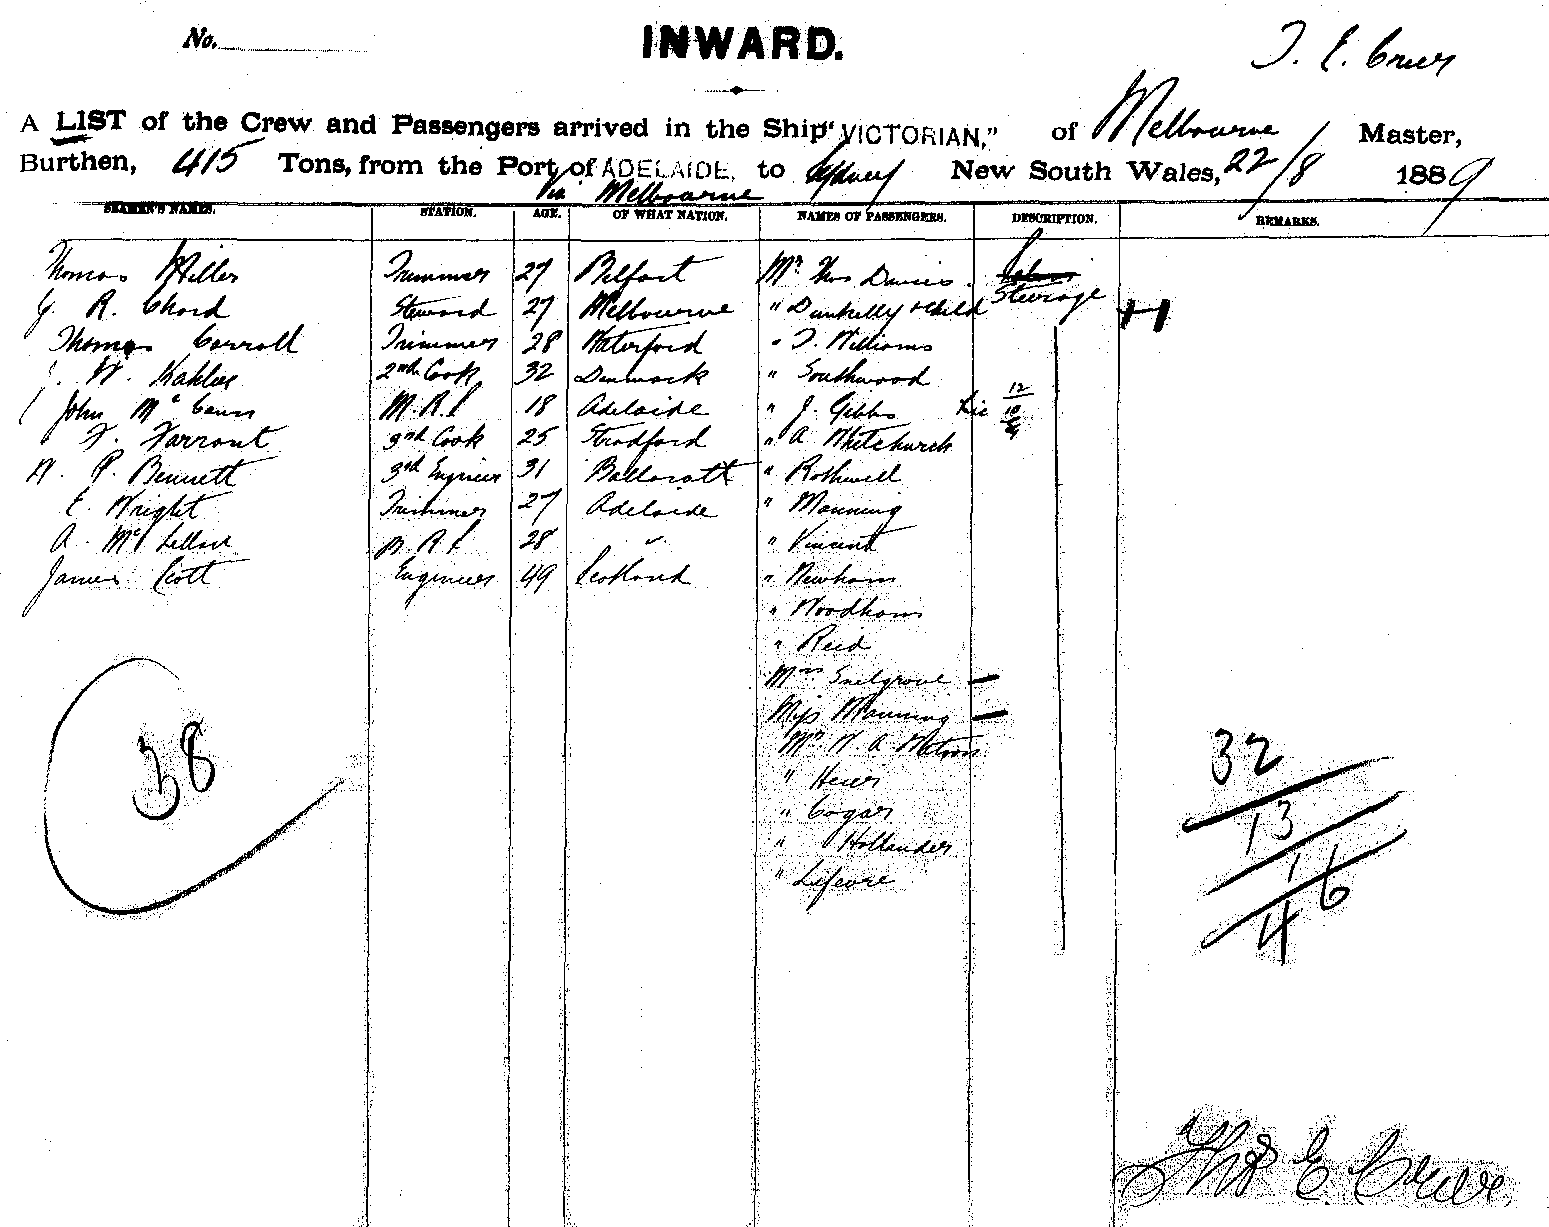 No.
INWARD.
T. E. Creer
A LIST of the Crew and Passengers arrived in the Ship "VICTORIAN," of Melbourne / Master,
Burthen, 415 Tons, from the Port of ADELAIDE, to Sydney New South Wales, 22/8 1889
Via Melbourne
SEAMEN'S NAMES. STATION. AGE. OF WHAT NATION. NAMES OF PASSENGERS. DESCRIPTION. REMARKS.
Thomas Miller Trimmer 27 Belfast Mr Thos Davies
G. R. Chard Steward 27 Melbourne " Dunkelly & Child Steerage
Thomas Carroll Trimmer 28 Waterford " T. Williams
J. W. 2nd Cook 32 Denmark " Southwood
John Mc 18 Adelaide " J. Gibbs 12
F. Farrant 3rd Cook 25 Stradford " A Whitchurch
W. P. Bennett 3rd Engineer 31 Ballaratt " Rothwell
E. Wright Trimmer 27 Adelaide " Manning
A. McLellan 28 " " Vincent
James Scott Engineer 49 Scotland " Newham
" Woodham
" Reid
Mrs Snelgrove
Miss Manning
Mr W. A. Watson
" 
" Cogar
" Hollander
" Lefevre
38
32
13
1
6
4
Thos E. Creer